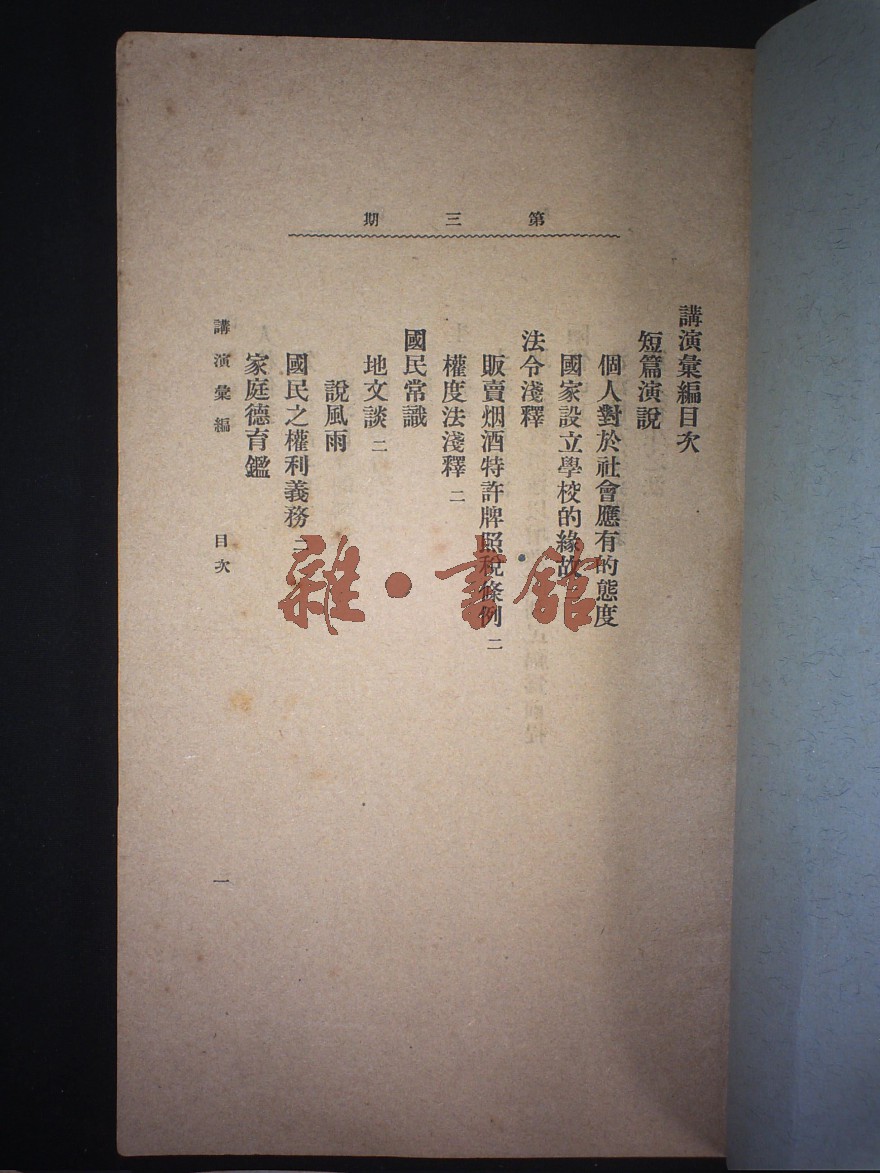 第三期
講演彙編目次
短篇演說
個人對於社會應有的態度
國家設立學校的緣故
法令淺釋
販賣烟酒特許牌照稅條例 二
權度法淺釋 二
國民常識
地文談 二
說風雨
國民之權利義務 二
家庭德育鑑
講演彙編 目次 一
雜·書館